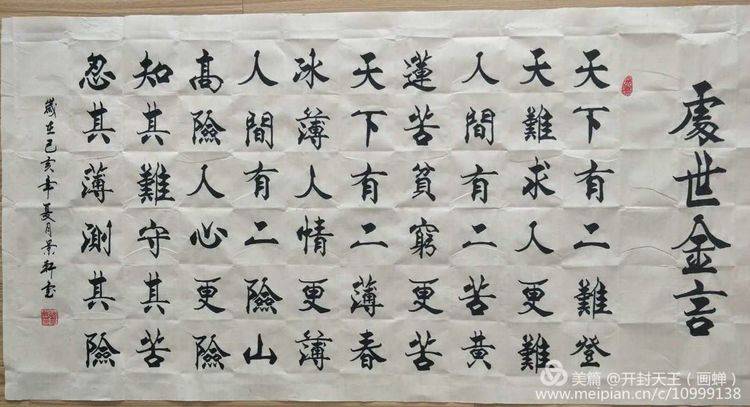 處世金言
天下有二難登
天難求人更難
人間有二苦黃
蓮苦貧窮更苦
天下有二薄春
冰薄人情更薄
人間有二險山
高險人心更險
知其難守其苦
忍其薄測其險
歲在己亥年夏月景軒书
美篇 @开封天王（画蝉）
www.meipian.cn/c/10999138